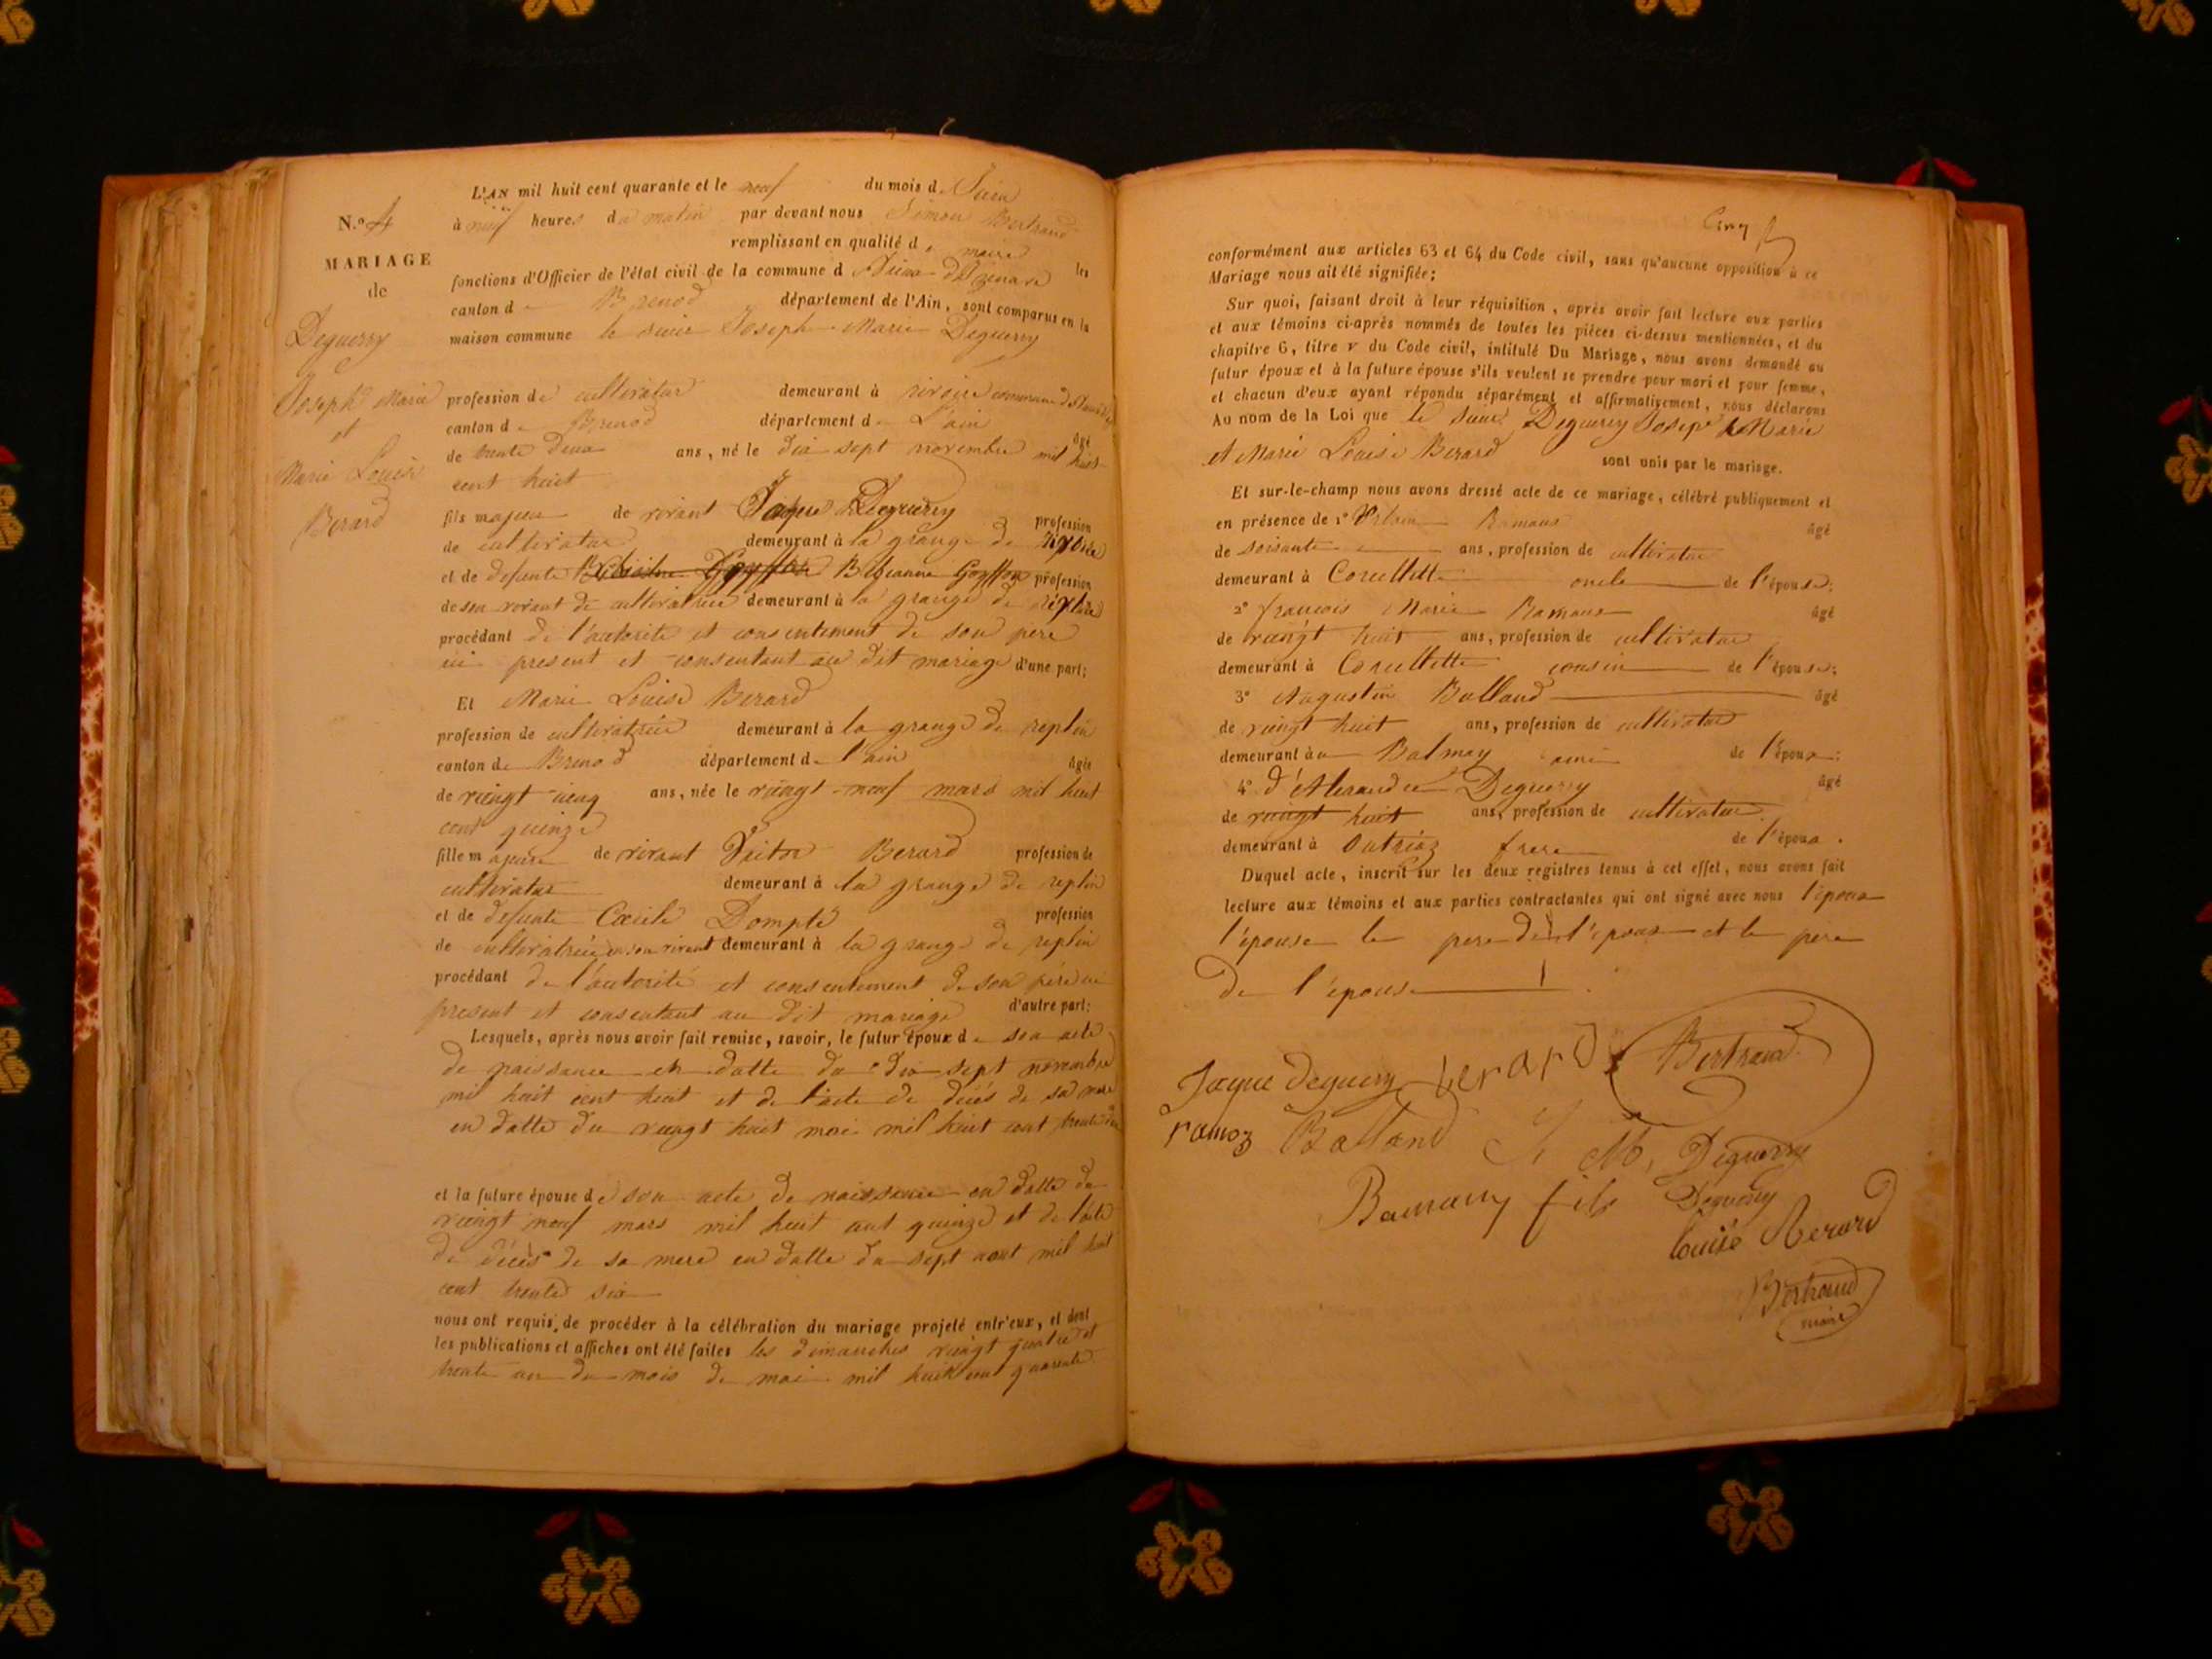 N.º 4
MARIAGE
de
Deguerry
Joseph Marie
et
Marie Louise
Berard
L'AN mil huit cent quarante et le neuf du mois d. Juin
à neuf heures du matin par devant nous Simon Bertrand
remplissant en qualité de maire les
fonctions d'Officier de l'état civil de la commune d
canton de Brenod département de l'Ain, sont comparus en la
maison commune le sieur Joseph Marie Deguerry
profession de cultivatur demeurant à commune
canton de Brenod département de L'ain âgé
de trente deux ans, né le dix sept novembre mil huit
cent huit
fils majeur de vivant Jaque Deguerry profession
de cultivatur demeurant à la grange de
et de defunte Goyffon profession
de son vivant de cultivatrice demeurant à la grange de
procédant de l'autorite et consentement de son pere
ici present et consentant au dit mariage d'une part;
Et Marie Louise Berard
profession de cultivatrice demeurant à la grange de replin
canton de Brenod département de l'ain âgée
de vingt cinq ans, née le vingt-neuf mars mil huit
cent quinze
fille majeure de vivant Victor Berard profession de
cultivatur demeurant à la grange de replin
et de defunte Cecile Dompté profession
de cultivatrice en son vivant demeurant à la grange de replin
procédant de l'autorité et consentement de son père ici
present et consentant au dit mariage d'autre part;
Lesquels, après nous avoir fait remise, savoir, le futur époux de son acte
de naissance en datte du dix sept novembre
mil huit cent huit et de l'acte de décés de sa mere
en datte du vingt huit mai mil huit cent trente
et la future épouse de son acte de naissance en datte du
vingt neuf mars mil huit cent quinze et de l'acte
de décès de sa mere en datte du sept aout mil huit
cent trente six
nous ont requis de procéder à la célébration du mariage projeté entr'eux, et dont
les publications et affiches ont été faites les dimanches vingt quatre et
trente un du mois de mai mil huit cent quarante
Cinq
conformément aux articles 63 et 64 du Code civil, sans qu'aucune opposition à ce
Mariage nous ait été signifiée;
Sur quoi, faisant droit à leur réquisition, après avoir fait lecture aux parties
et aux témoins ci-après nommés de toutes les pièces ci-dessus mentionnées, et du
chapitre 6, titre v du Code civil, intitulé Du Mariage, nous avons demandé au
futur époux et à la future épouse s'ils veulent se prendre pour mari et pour femme,
et chacun d'eux ayant répondu séparément et affirmativement, nous déclarons
Au nom de la Loi que le sieur Deguerry Marie
et Marie Louise Berard sont unis par le mariage.
Et sur-le-champ nous avons dressé acte de ce mariage, célébré publiquement et
en présence de 1º Urbain âgé
de soisante ans, profession de cultivatur
demeurant à oncle de l'épouse;
2º francois Marie âgé
de vingt huit ans, profession de cultivatur
demeurant à cousin de l'épouse;
3º Augustin Balland âgé
de vingt huit ans, profession de cultivatur
demeurant à Balmay ami de l'époux;
4º Deguerry âgé
de vingt huit ans, profession de cultivatur
demeurant à Outriaz frere de l'époux.
Duquel acte, inscrit sur les deux registres tenus à cet effet, nous avons fait
lecture aux témoins et aux parties contractantes qui ont signé avec nous l'époux
l'épouse le pere de l'époux et le pere
de l'épouse
Jaque deguerry berard Bertrand
Balland J M, Deguerry
fils Deguerry
Louise Berard
Bertrand
maire